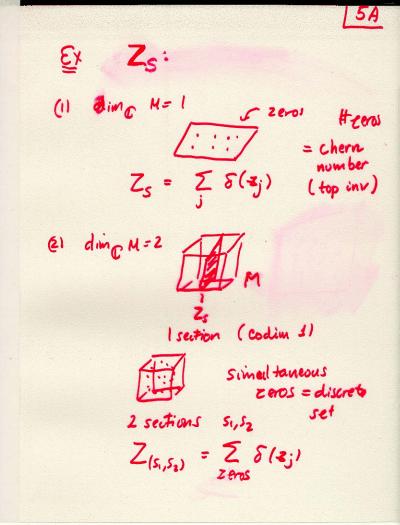 5A
Ex Z_S:
(1) dim_ℂ M = 1
zeros
# zeros
= chern
number
(top inv)
Z_S = Σ_j δ(z_j)
(2) dim_ℂ M = 2
M
Z_S
1 section (codim 1)
simultaneous
zeros = discrete
set
2 sections s₁, s₂
Z_(s₁,s₂) = Σ_zeros δ(z_j)